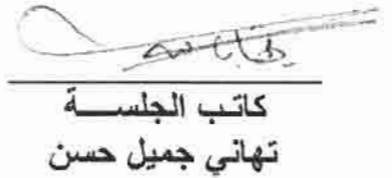 كاتب الجلســـة
تهاني جميل حسن